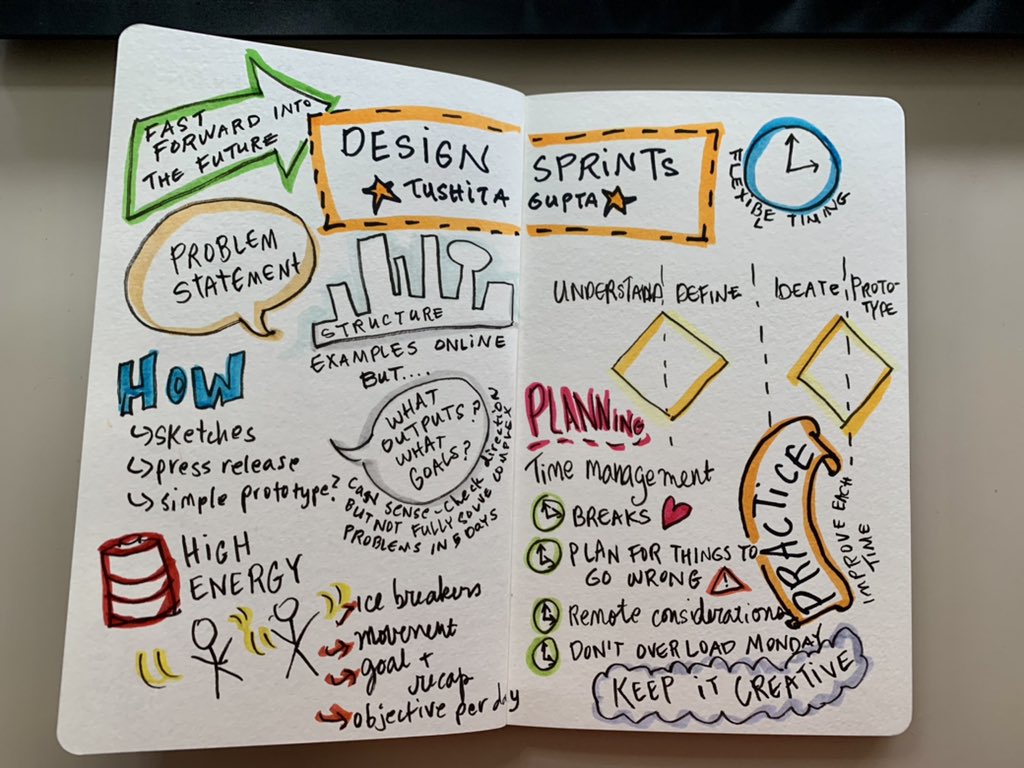 FAST
FORWARD INTO
THE FUTURE
DESIGN SPRINTS
TUSHITA GUPTA
FLEXIBLE TIMING
PROBLEM
STATEMENT
STRUCTURE
EXAMPLES ONLINE
BUT....
WHAT
OUTPUTS?
WHAT
GOALS?
Can sense-check direction
BUT NOT FULLY SOLVE COMPLEX
PROBLEMS IN 5 DAYS
HOW
sketches
press release
simple prototype?
HIGH
ENERGY
ice breakers
movement
goal +
recap
objective per day
UNDERSTAND DEFINE IDEATE PROTO-
TYPE
PLANNING
Time management
BREAKS
PLAN FOR THINGS TO
GO WRONG
Remote considerations
DON'T OVERLOAD MONDAY
PRACTICE
IMPROVE EACH
TIME
KEEP IT CREATIVE